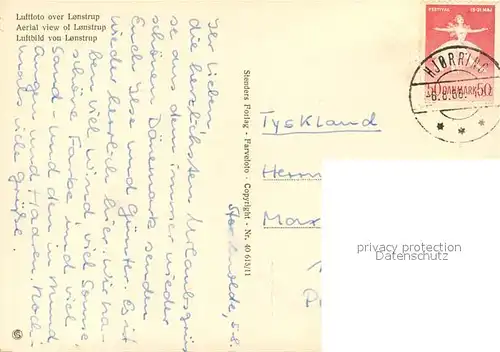 Luftfoto over Lønstrup
Aerial view of Lønstrup
Luftbild von Lønstrup
FESTIVAL
15-31 MAJ
HJØRRING
-8.8.66.
50 DANMARK 50
Stenders Forlag - Farvefoto - Copyright - Nr. 40 613/11
5.8.
Ihr Lieben,
die herzlichsten Urlaubsgrüs-
se aus dem immer wieder
schönen Dänemark senden
Euch Ilse und Günter. Es ist
wieder herrlich hier. Wir ha-
ben viel Wind, viel Sonne,
schöne Farbe und viel
Sand - und den in Mund
Augen und Haaren. Noch-
mals viele Grüße.
Tyskland
Herrn
Max
privacy protection
VEIKKOS